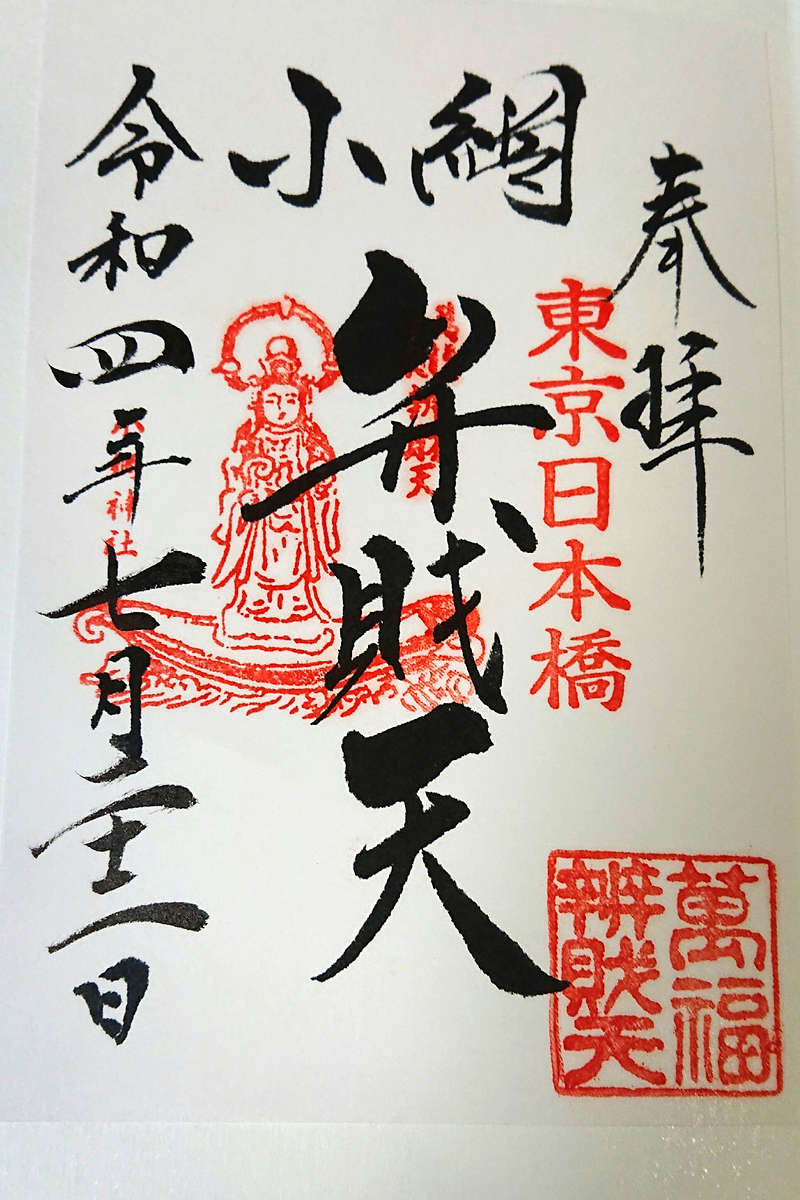 奉拝
東京日本橋
小網
弁財天
萬福
辨財天
令和四年七月廿一日
神社